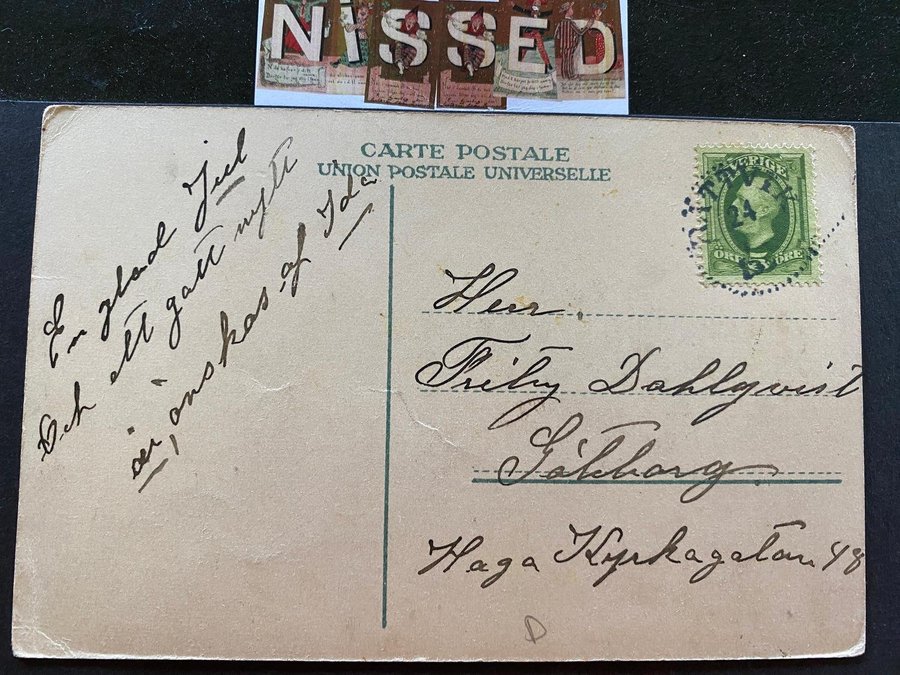 NISSED
CARTE POSTALE
UNION POSTALE UNIVERSELLE
En glad Jul
Och ett gott nytt
år, önskas af Ida
SVERIGE
24
ÖRE 5 ÖRE
Herr.
Fritz Dahlqvist
Göteborg
Haga Kyrkagatan 48
D